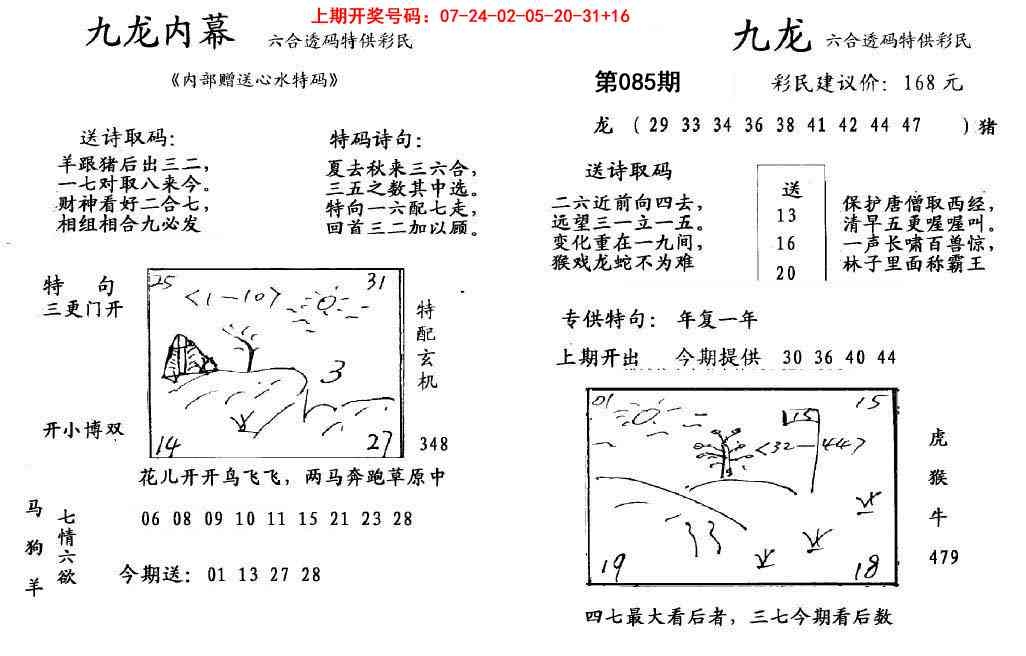 上期开奖号码：07-24-02-05-20-31+16
九龙内幕 六合透码特供彩民
《内部赠送心水特码》
送诗取码：
羊跟猪后出三二，
一七对取八来今。
财神看好二合七，
相组相合九必发
特码诗句：
夏去秋来三六合，
三五之数其中选。
特向一六配七走，
回首三二加以顾。
特 句
三更门开
开小博双
25 31
<1-10>
3
14 27
特配玄机
348
花儿开开鸟飞飞，两马奔跑草原中
马狗羊
七情六欲
06 08 09 10 11 15 21 23 28
今期送：01 13 27 28
九龙 六合透码特供彩民
第085期 彩民建议价：168元
龙 （29 33 34 36 38 41 42 44 47 ）猪
送诗取码
二六近前向四去，
远望三一立一五。
变化重在一九间，
猴戏龙蛇不为难
送
13
16
20
保护唐僧取西经，
清早五更喔喔叫。
一声长啸百兽惊，
林子里面称霸王
专供特句： 年复一年
上期开出 今期提供 30 36 40 44
01 15
15
<32-44>
19 18
虎
猴
牛
479
四七最大看后者，三七今期看后数